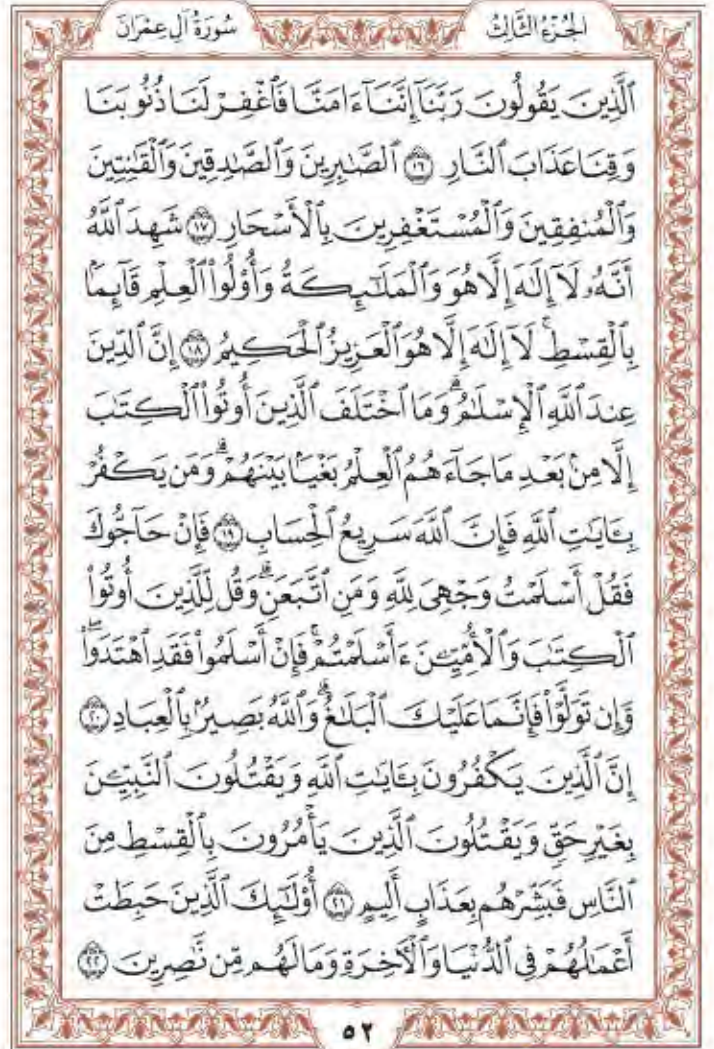 سُورَةُ آلِ عِمْرَانَ
الجُزْءُ الثَّالِثُ
ٱلَّذِينَ يَقُولُونَ رَبَّنَآ إِنَّنَآ ءَامَنَّا فَٱغْفِرْ لَنَا ذُنُوبَنَا
وَقِنَا عَذَابَ ٱلنَّارِ ١٦ ٱلصَّٰبِرِينَ وَٱلصَّٰدِقِينَ وَٱلْقَٰنِتِينَ
وَٱلْمُنفِقِينَ وَٱلْمُسْتَغْفِرِينَ بِٱلْأَسْحَارِ ١٧ شَهِدَ ٱللَّهُ
أَنَّهُۥ لَآ إِلَٰهَ إِلَّا هُوَ وَٱلْمَلَٰٓئِكَةُ وَأُو۟لُوا۟ ٱلْعِلْمِ قَآئِمًۢا
بِٱلْقِسْطِۚ لَآ إِلَٰهَ إِلَّا هُوَ ٱلْعَزِيزُ ٱلْحَكِيمُ ١٨ إِنَّ ٱلدِّينَ
عِندَ ٱللَّهِ ٱلْإِسْلَٰمُۗ وَمَا ٱخْتَلَفَ ٱلَّذِينَ أُوتُوا۟ ٱلْكِتَٰبَ
إِلَّا مِنۢ بَعْدِ مَا جَآءَهُمُ ٱلْعِلْمُ بَغْيًۢا بَيْنَهُمْۗ وَمَن يَكْفُرْ
بِـَٔايَٰتِ ٱللَّهِ فَإِنَّ ٱللَّهَ سَرِيعُ ٱلْحِسَابِ ١٩ فَإِنْ حَآجُّوكَ
فَقُلْ أَسْلَمْتُ وَجْهِىَ لِلَّهِ وَمَنِ ٱتَّبَعَنِۗ وَقُل لِّلَّذِينَ أُوتُوا۟
ٱلْكِتَٰبَ وَٱلْأُمِّيِّـۧنَ ءَأَسْلَمْتُمْۚ فَإِنْ أَسْلَمُوا۟ فَقَدِ ٱهْتَدَوا۟ۖ
وَّإِن تَوَلَّوْا۟ فَإِنَّمَا عَلَيْكَ ٱلْبَلَٰغُۗ وَٱللَّهُ بَصِيرٌۢ بِٱلْعِبَادِ ٢٠
إِنَّ ٱلَّذِينَ يَكْفُرُونَ بِـَٔايَٰتِ ٱللَّهِ وَيَقْتُلُونَ ٱلنَّبِيِّـۧنَ
بِغَيْرِ حَقٍّ وَيَقْتُلُونَ ٱلَّذِينَ يَأْمُرُونَ بِٱلْقِسْطِ مِنَ
ٱلنَّاسِ فَبَشِّرْهُم بِعَذَابٍ أَلِيمٍ ٢١ أُو۟لَٰٓئِكَ ٱلَّذِينَ حَبِطَتْ
أَعْمَٰلُهُمْ فِى ٱلدُّنْيَا وَٱلْـَٔاخِرَةِ وَمَا لَهُم مِّن نَّٰصِرِينَ ٢٢
٥٢